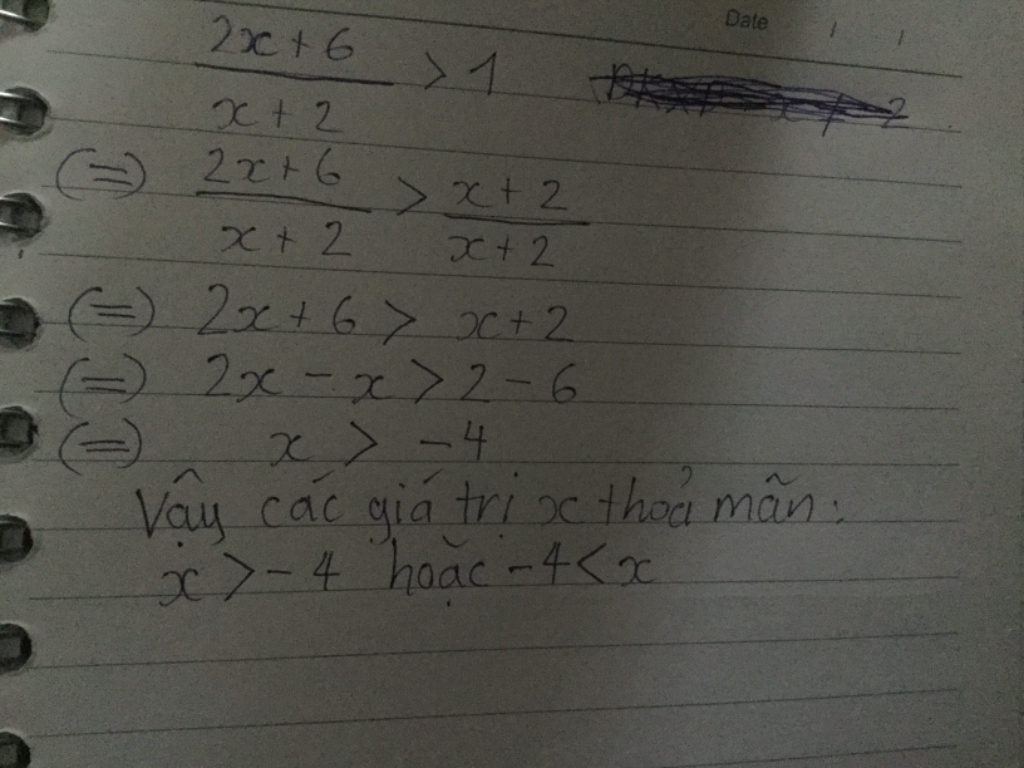 Date / /
2x + 6
—— > 1
x + 2
(=) 2x + 6 / x + 2 > x + 2 / x + 2
(=) 2x + 6 > x + 2
(=) 2x - x > 2 - 6
(=) x > -4
Vậy các giá trị x thoả mãn:
x > -4 hoặc -4 < x